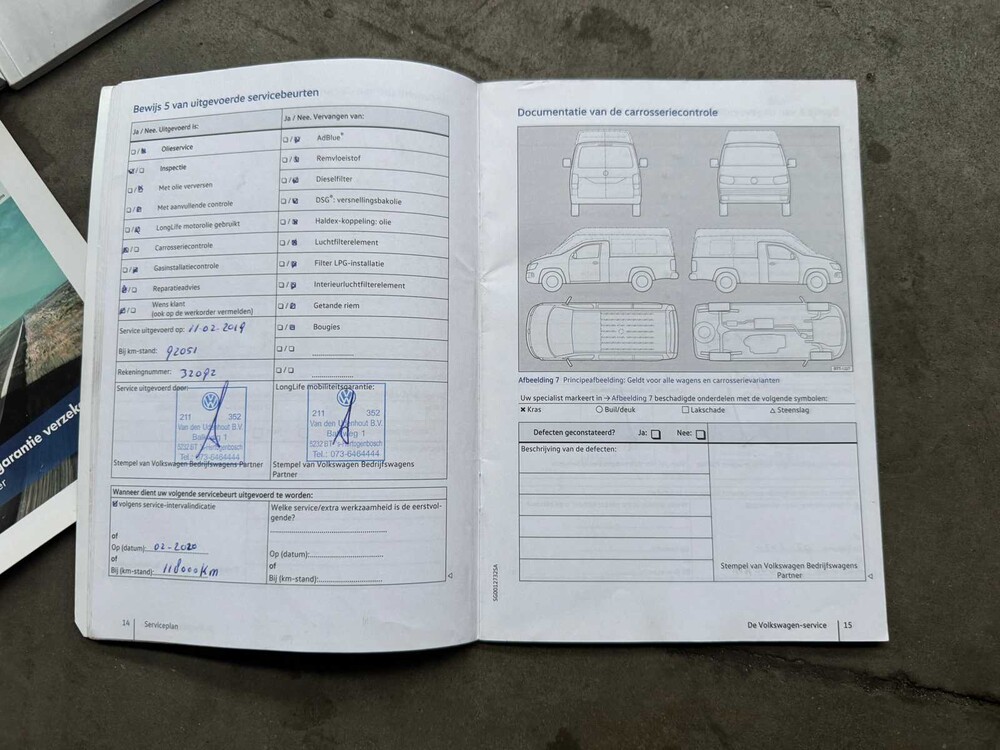 garantie verzeke
er
Bewijs 5 van uitgevoerde servicebeurten
Ja / Nee. Uitgevoerd is:
Olieservice
Inspectie
Met olie verversen
Met aanvullende controle
LongLife motorolie gebruikt
Carrosseriecontrole
Gasinstallatiecontrole
Reparatieadvies
Wens klant
(ook op de werkorder vermelden)
Service uitgevoerd op: 11-02-2019
Bij km-stand: 92051
Rekeningnummer: 32092
Ja / Nee. Vervangen van:
AdBlue®
Remvloeistof
Dieselfilter
DSG®: versnellingsbakolie
Haldex-koppeling: olie
Luchtfilterelement
Filter LPG-installatie
Interieurluchtfilterelement
Getande riem
Bougies
Service uitgevoerd door:
211 352
Van den Udenhout B.V.
Balkweg 1
5232 BT 's-Hertogenbosch
Tel.: 073-6464444
Stempel van Volkswagen Bedrijfswagens Partner
LongLife mobiliteitsgarantie:
211 352
Van den Udenhout B.V.
Balkweg 1
5232 BT 's-Hertogenbosch
Tel.: 073-6464444
Stempel van Volkswagen Bedrijfswagens
Partner
Wanneer dient uw volgende servicebeurt uitgevoerd te worden:
volgens service-intervalindicatie
of
Op (datum): 02-2020
of
Bij (km-stand): 118000km
Welke service/extra werkzaamheid is de eerstvol-
gende?
Op (datum):
of
Bij (km-stand):
14 Serviceplan
Documentatie van de carrosseriecontrole
Afbeelding 7 Principeafbeelding: Geldt voor alle wagens en carrosserievarianten
Uw specialist markeert in → Afbeelding 7 beschadigde onderdelen met de volgende symbolen:
✖ Kras ○ Buil/deuk □ Lakschade △ Steenslag
Defecten geconstateerd? Ja: Nee:
Beschrijving van de defecten:
Stempel van Volkswagen Bedrijfswagens
Partner
SG0012732SA
De Volkswagen-service 15